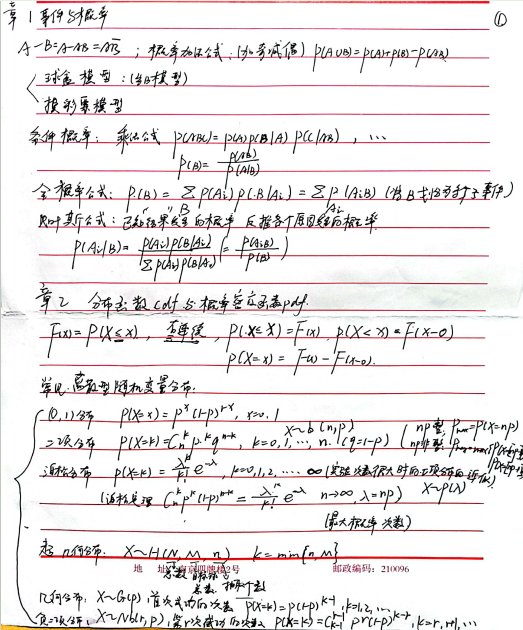 章1 事件与概率 ①
A-B=A-AB=AB̅ ; 概率加法公式:(加奇减偶) P(A∪B)=P(A)+P(B)-P(AB)
球盒模型:(占B模型)
摸彩票模型
条件概率: 乘法公式 P(ABC)=P(A)P(B|A)P(C|AB), …
P(B)= P(AB)/P(A|B)
全概率公式: P(B)=ΣP(Ai)P(B|Ai)=ΣP(AiB) (将B
贝叶斯公式:已知"结果"发生的概率 反推各个原因 的概率
B Ai
P(Ai|B)= P(Ai)P(B|Ai)/ΣP(Ai)P(B|Ai) (= P(AiB)/P(B))
章2 分布函数cdf与概率密度函数pdf.
F(x)=P(X≤x), 右连续, P(X≤x)=F(x), P(X<x)=F(x-0)
P(X=x)=F(x)-F(x-0).
常见离散型随机变量分布:
(0,1)分布 P(X=x)=pˣ(1-p)¹⁻ˣ, x=0.1
X~b(n,p)
二项分布 P(X=k)=Cₙᵏ pᵏ qⁿ⁻ᵏ, k=0,1,…,n. (q=1-p) (np整, Pmax=P(X=np)
np非整,
泊松分布 P(X=k)= λᵏ/k! e^-λ, k=0,1,2,…∞ (实验次数很大时的二项分布的近似)
X~P(λ)
(泊松定理 Cₙᵏ pᵏ(1-p)ⁿ⁻ᵏ = λᵏ/k! e^-λ n→∞, λ=np)
(最大概率次数)
超几何分布: X~H(N, M, n) k=min{n,M}
地 址:南京四牌楼2号 邮政编码:210096
总数
几何分布: X~G(p), 首次成功的次数 P(X=k)=p(1-p)ᵏ⁻¹, k=1,2,…
负二项分布: X~Nb(r,p), 第r次成功的次数 P(X=k)=Cₖ₋₁ʳ⁻¹ pʳ(1-p)ᵏ⁻ʳ, k=r,r+1,…